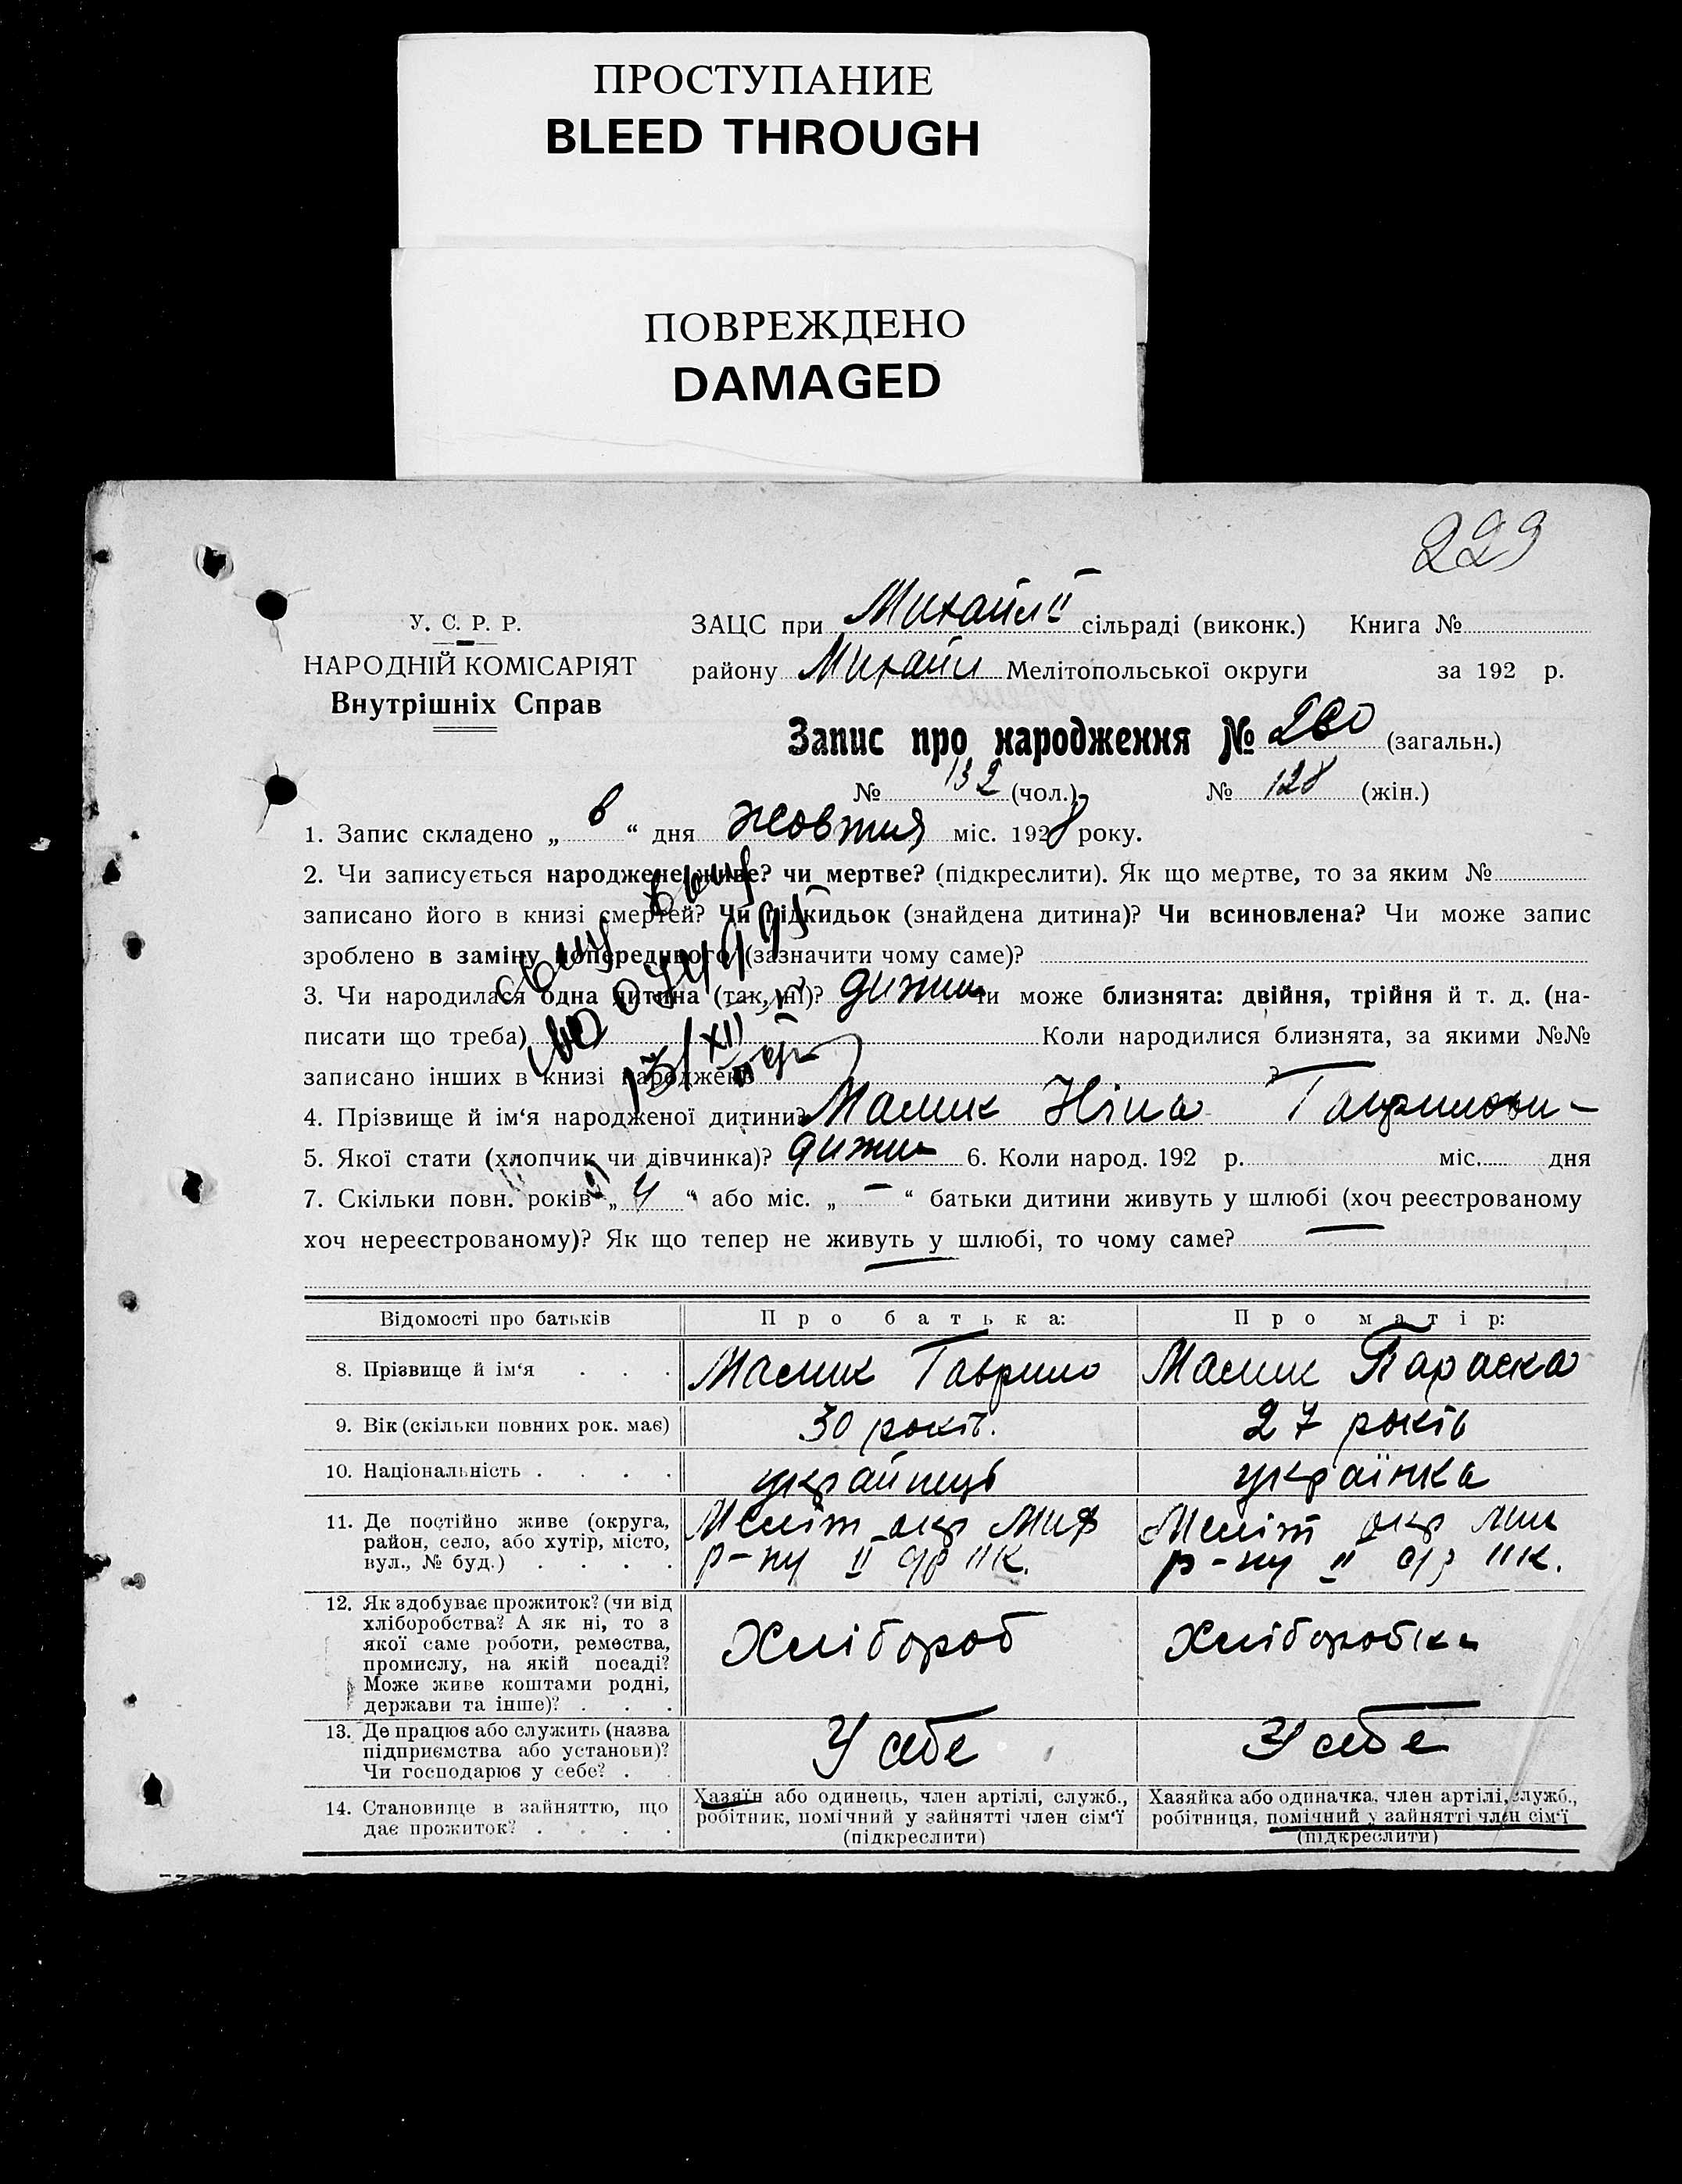 ПРОСТУПАНИЕ
BLEED THROUGH
ПОВРЕЖДЕНО
DAMAGED
229
У. С. Р. Р.
НАРОДНІЙ КОМІСАРІЯТ
Внутрішніх Справ
ЗАЦС при Михайл II сільраді (виконк.) Книга №
району Михайл Мелітопольської округи за 192 р.
Запис про народження № 260 (загальн.)
№ 132 (чол.) № 128 (жін.)
1. Запис складено „ 6 “ дня жовтня міс. 1928 року.
2. Чи записується народжене живе? чи мертве? (підкреслити). Як що мертве, то за яким №
записано його в книзі смертей? Чи підкидьок (знайдена дитина)? Чи всиновлена? Чи може запис
зроблено в заміну попереднього (зазначити чому саме)?
3. Чи народилася одна дитина (так, ні)? чи може близнята: двійня, трійня й т. д. (на-
писати що треба) Коли народилися близнята, за якими №№
записано інших в книзі народжень ?
13/XII
4. Прізвище й ім‘я народженої дитини? Малик Ніна
5. Якої стати (хлопчик чи дівчинка)? 6. Коли народ. 192 р. міс. дня
7. Скільки повн. років „ 4 “ або міс. „ – “ батьки дитини живуть у шлюбі (хоч реєстрованому
хоч нереєстрованому)? Як що тепер не живуть у шлюбі, то чому саме? —
Відомості про батьків Про батька: Про матір:
8. Прізвище й ім‘я . . . Малик Гаврило Малик Параска
9. Вік (скільки повних рок. має) 30 років. 27 років
10. Національність . . . . українець українка
11. Де постійно живе (округа,
район, село, або хутір, місто,
вул., № буд.) . . . .
Меліт окр Мих
р-ну II
Меліт окр Мих
р-ну II
12. Як здобуває прожиток? (чи від
хліборобства? А як ні, то з
якої саме роботи, ремества,
промислу, на якій посаді?
Може живе коштами родні,
держави та інше)? . . .
Хлібороб Хліборобка
13. Де працює або служить (назва
підприємства або установи)?
Чи господарює у себе? . .
У себе У себе
14. Становище в зайняттю, що
дає прожиток? . . . .
Хазяїн або одинець, член артілі, служб.,
робітник, помічний у зайнятті член сім‘ї
(підкреслити)
Хазяйка або одиначка, член артілі, служб.,
робітниця, помічний у зайнятті член сім‘ї
(підкреслити)